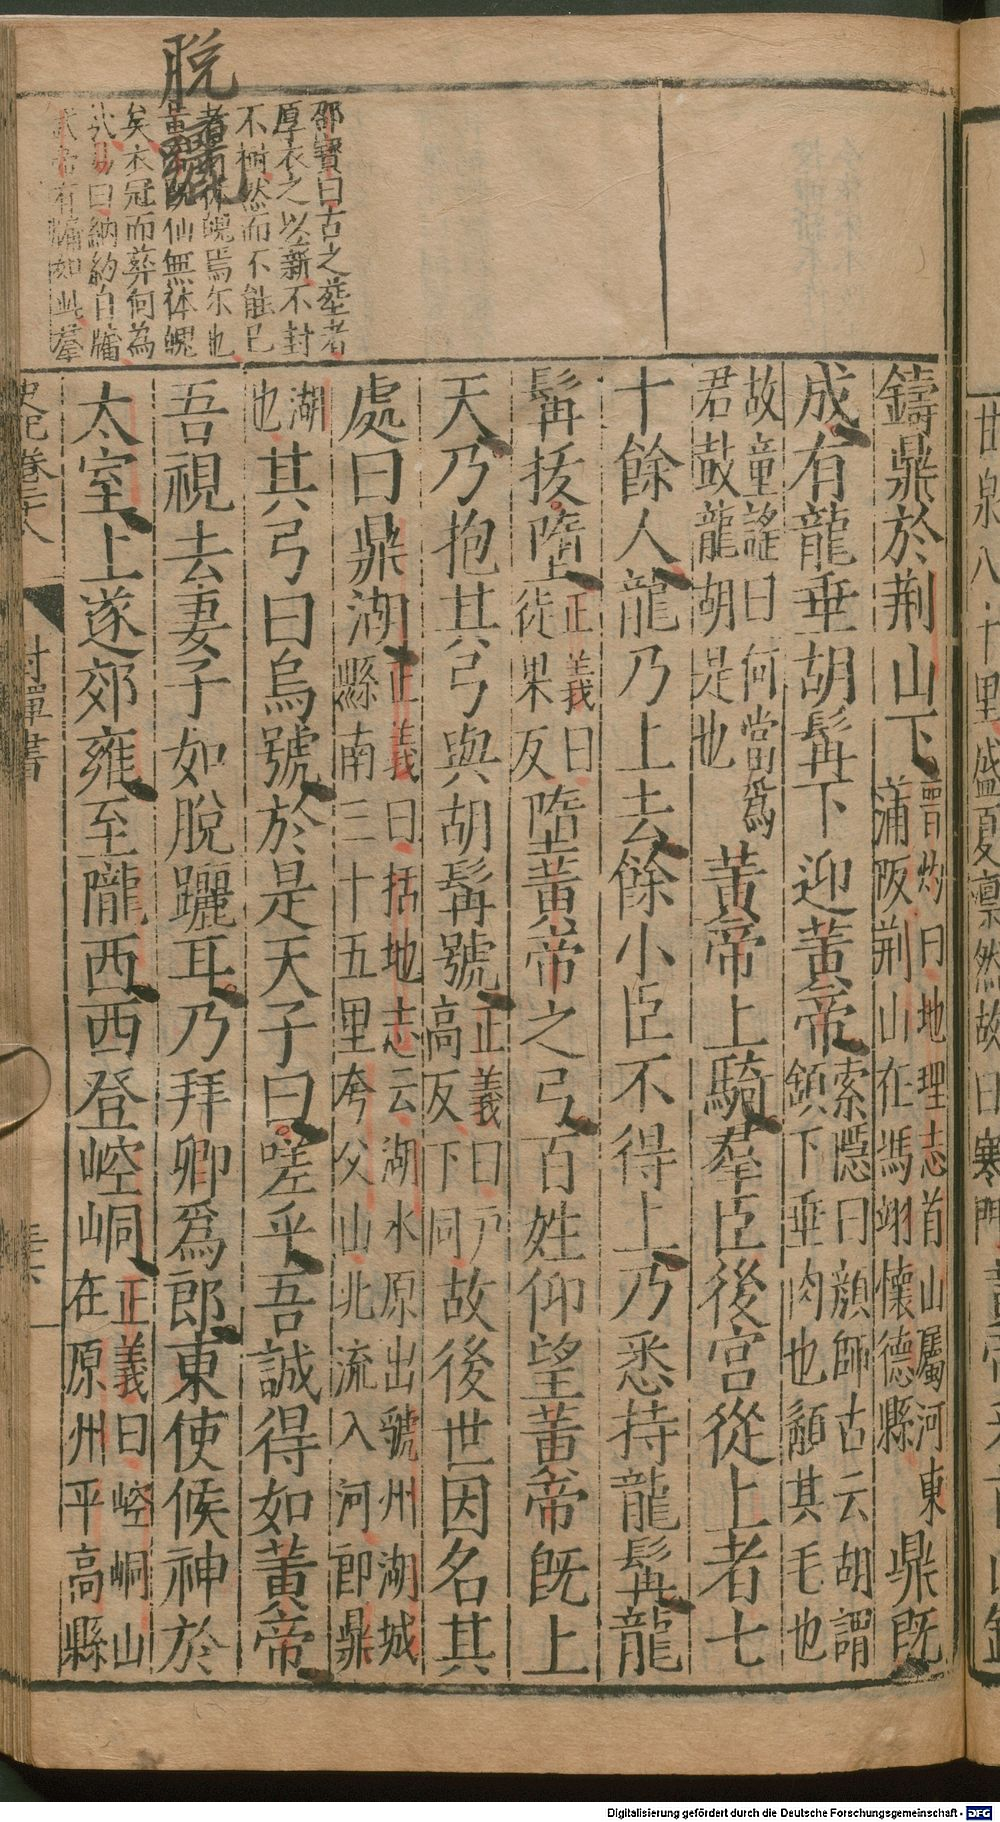 脫
邵寶曰古之葬者
厚衣之以薪不封
不樹然而不能已
焉尔也
仙無体魄
矣衣冠而葬何為
哉易曰納約自牖
武帝有牖如此羣
鑄鼎於荆山下
晉灼曰地理志首山屬河東
蒲阪荆山在馮翊懷德縣
鼎既
成有龍垂胡髯下迎黃帝
索隱曰顏師古云胡謂
頷下垂肉也顏其毛也
故童謠曰何當爲
君鼓龍胡是也
黃帝上騎羣臣後宮從上者七
十餘人龍乃上去餘小臣不得上乃悉持龍髯龍
髯拔墮
正義曰
徒果反
墮黃帝之弓百姓仰望黃帝既上
天乃抱其弓與胡髯號
正義曰戸
高反下同
故後世因名其
處曰鼎湖
正義曰括地志云湖水原出虢州湖城
縣南三十五里夸父山北流入河即鼎
湖
也
其弓曰烏號於是天子曰嗟乎吾誠得如黃帝
吾視去妻子如脫躧耳乃拜卿爲郎東使候神於
太室上遂郊雍至隴西西登崆峒
正義曰崆峒山
在原州平高縣
史記卷二十八
封禪書
Digitalisierung gefördert durch die Deutsche Forschungsgemeinschaft - DFG